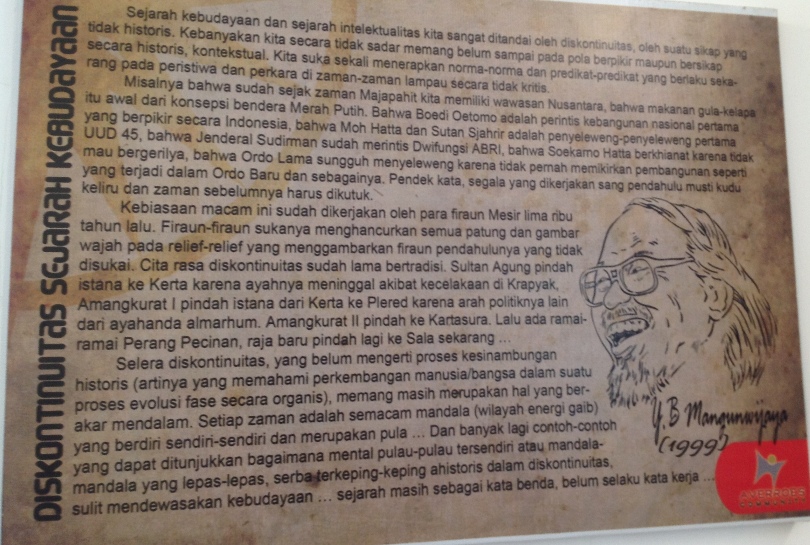 DISKONTINUITAS SEJARAH KEBUDAYAAN
Sejarah kebudayaan dan sejarah intelektualitas kita sangat ditandai oleh diskontinuitas, oleh suatu sikap yang
tidak historis. Kebanyakan kita secara tidak sadar memang belum sampai pada pola berpikir maupun bersikap
secara historis, kontekstual. Kita suka sekali menerapkan norma-norma dan predikat-predikat yang berlaku seka-
rang pada peristiwa dan perkara di zaman-zaman lampau secara tidak kritis.
Misalnya bahwa sudah sejak zaman Majapahit kita memiliki wawasan Nusantara, bahwa makanan gula-kelapa
itu awal dari konsepsi bendera Merah Putih. Bahwa Boedi Oetomo adalah perintis kebangunan nasional pertama
yang berpikir secara Indonesia, bahwa Moh Hatta dan Sutan Sjahrir adalah penyeleweng-penyeleweng pertama
UUD 45, bahwa Jenderal Sudirman sudah merintis Dwifungsi ABRI, bahwa Soekarno Hatta berkhianat karena tidak
mau bergerilya, bahwa Ordo Lama sungguh menyeleweng karena tidak pernah memikirkan pembangunan seperti
yang terjadi dalam Ordo Baru dan sebagainya. Pendek kata, segala yang dikerjakan sang pendahulu musti kudu
keliru dan zaman sebelumnya harus dikutuk.
Kebiasaan macam ini sudah dikerjakan oleh para firaun Mesir lima ribu
tahun lalu. Firaun-firaun sukanya menghancurkan semua patung dan gambar
wajah pada relief-relief yang menggambarkan firaun pendahulunya yang tidak
disukai. Cita rasa diskontinuitas sudah lama bertradisi. Sultan Agung pindah
istana ke Kerta karena ayahnya meninggal akibat kecelakaan di Krapyak,
Amangkurat I pindah istana dari Kerta ke Plered karena arah politiknya lain
dari ayahanda almarhum. Amangkurat II pindah ke Kartasura. Lalu ada ramai-
ramai Perang Pecinan, raja baru pindah lagi ke Sala sekarang ...
Selera diskontinuitas, yang belum mengerti proses kesinambungan
historis (artinya yang memahami perkembangan manusia/bangsa dalam suatu
proses evolusi fase secara organis), memang masih merupakan hal yang ber-
akar mendalam. Setiap zaman adalah semacam mandala (wilayah energi gaib)
yang berdiri sendiri-sendiri dan merupakan pula ... Dan banyak lagi contoh-contoh
yang dapat ditunjukkan bagaimana mental pulau-pulau tersendiri atau mandala-
mandala yang lepas-lepas, serba terkeping-keping ahistoris dalam diskontinuitas,
sulit mendewasakan kebudayaan ... sejarah masih sebagai kata benda, belum selaku kata kerja ...
Y.B Mangunwijaya
(1999)
AVERROES